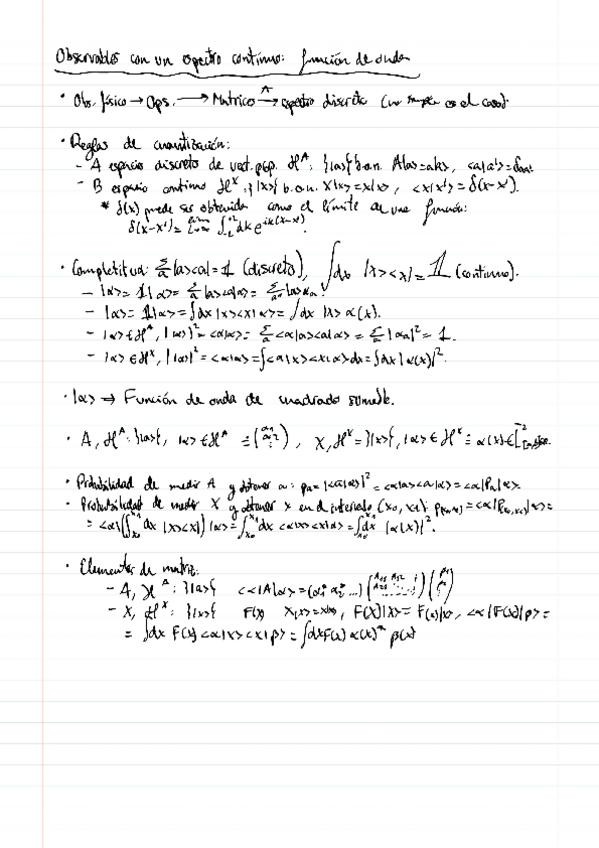 Observables con un espectro continuo: función de onda
• Obs. físico → Ops. → Matrices →^A espectro discreto (no siempre es el caso).
• Reglas de cuantización:
- A espacio discreto de vect. prop. ℋ^A: }|a>{ b.o.n. A|a>=a|a>, <a|a'>=δaa'
- B espacio continuo ℋ^X: }|x>{ b.o.n. X|x>=x|x>, <x|x'>=δ(x-x').
* δ(x) puede ser obtenida como el límite de una función:
δ(x-x')= lim ∫ dk e^{ik(x-x')}.
• Completitud: Σ_a |a><a|=𝟙 (discreto), ∫dx |x><x|=𝟙 (continuo).
- |α>=𝟙|α>=Σ_a |a><a|α>=Σ_a |a>α_a.
- |α>=𝟙|α>=∫dx|x><x|α>=∫dx |x>α(x).
- |α>∈ℋ^A, ||α>|²=<α|α>=Σ_a <α|a><a|α>=Σ_a |α_a|²=1.
- |α>∈ℋ^X, ||α>|²=<α|α>=∫<α|x><x|α>dx=∫dx|α(x)|².
• |α> → Función de onda de cuadrado sumable.
• A, ℋ^A: }|a>{, |α>∈ℋ^A ≡ (α1 α2 ⋮), X, ℋ^X=}|x>{, |α>∈ℋ^X ≡ α(x)∈L²
• Probabilidad de medir A y obtener a: p_a=|<a|α>|²=<α|a><a|α>=<α|P_a|α>
• Probabilidad de medir X y obtener x en el intervalo (x₀, x₁): p_(x₀,x₁)=<α|P_(x₀,x₁)|α>=
=<α|(∫_{x₀}^{x₁} dx |x><x|)|α>=∫_{x₀}^{x₁} dx <α|x><x|α>=∫_{x₀}^{x₁} dx |α(x)|².
• Elementos de matriz:
- A, ℋ^A: }|a>{ <α|A|α>=(α1* α2* ...)(A11 A12 ...)(β1 β2 ⋮)
- X, ℋ^X: }|x>{ F(x) X|x>=x|x>, F(X)|x>=F(x)|x>, <α|F(X)|β>=
=∫dx F(x)<α|x><x|β>=∫dx F(x) α(x)* β(x)